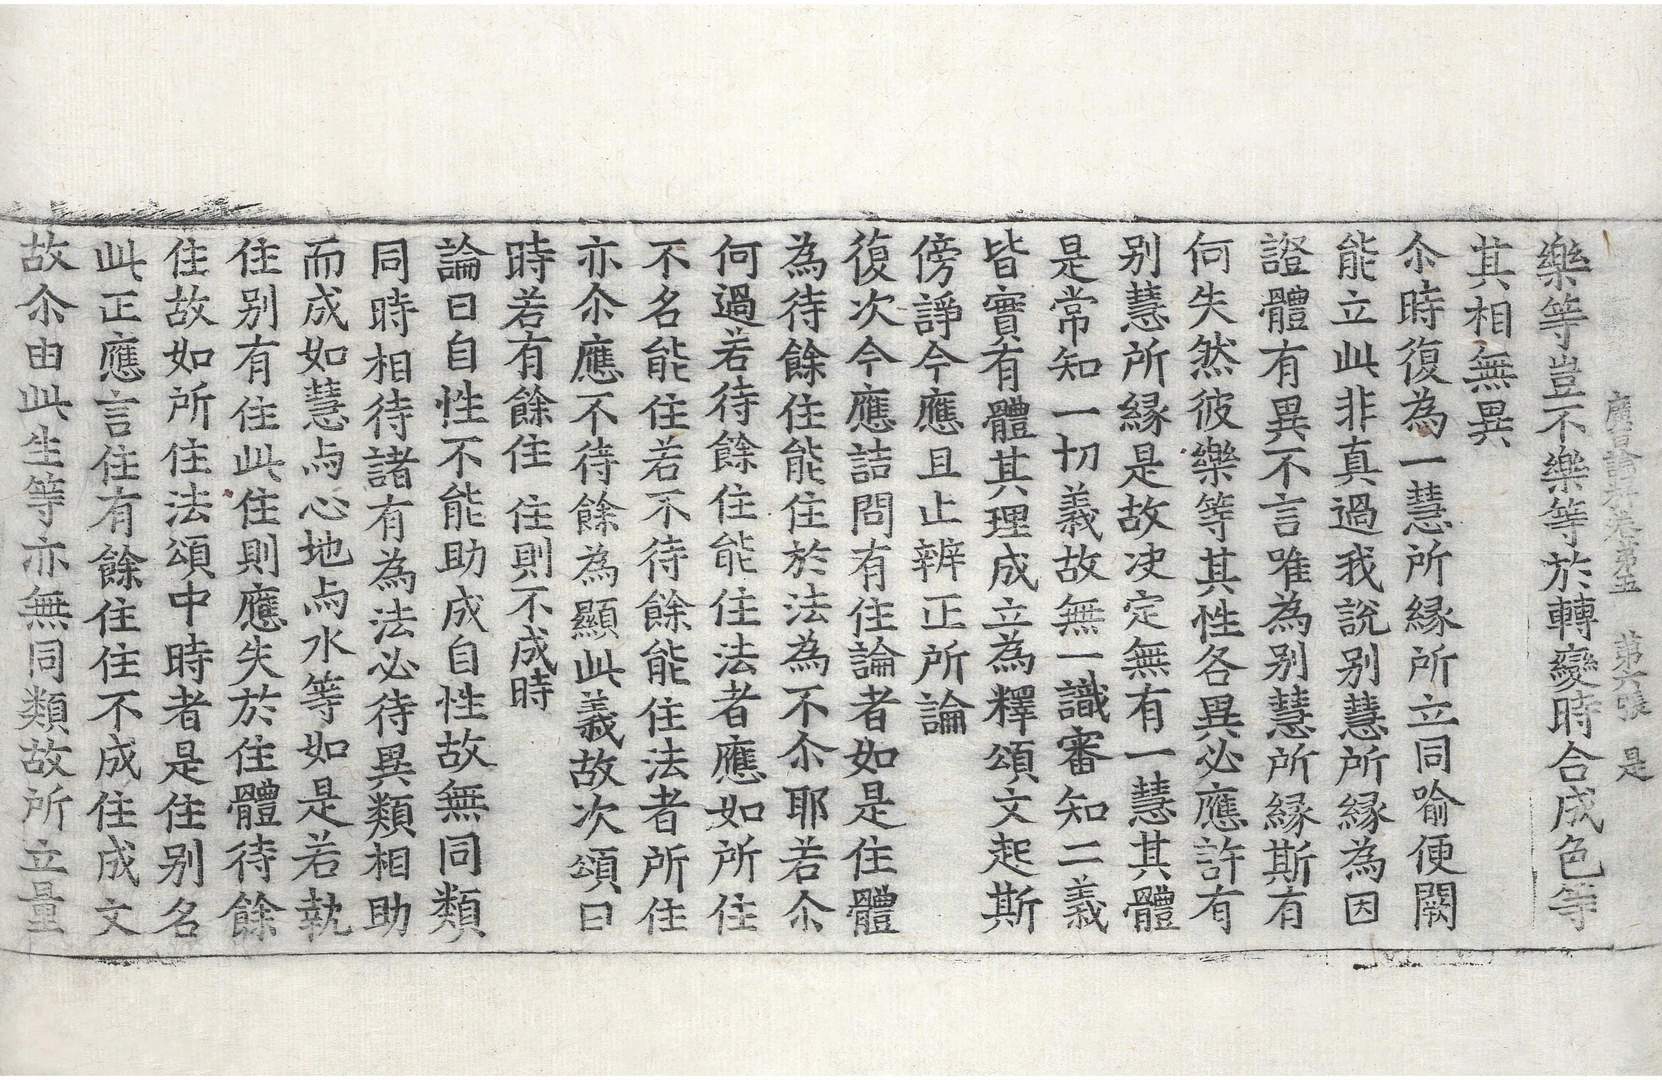 廣百論釋卷第五　第六張　是
樂等豈不樂等於轉變時合成色等
其相無異
尒時復為一慧所縁所立同喻便闕
能立此非真過我說别慧所縁為因
證體有異不言唯為别慧所縁斯有
何失然彼樂等其性各異必應許有
别慧所縁是故决定無有一慧其體
是常知一切義故無一識審知二義
皆實有體其理成立為釋頌文起斯
傍諍今應且止辨正所論
復次今應詰問有住論者如是住體
為待餘住能住於法為不尒耶若尒
何過若待餘住能住法者應如所住
不名能住若不待餘能住法者所住
亦尒應不待餘為顯此義故次頌曰
時若有餘住　住則不成時
論曰自性不能助成自性故無同類
同時相待諸有為法必待異類相助
而成如慧与心地与水等如是若執
住别有住此住則應失於住體待餘
住故如所住法頌中時者是住别名
此正應言住有餘住住不成住成文
故尒由此生等亦無同類故所立量